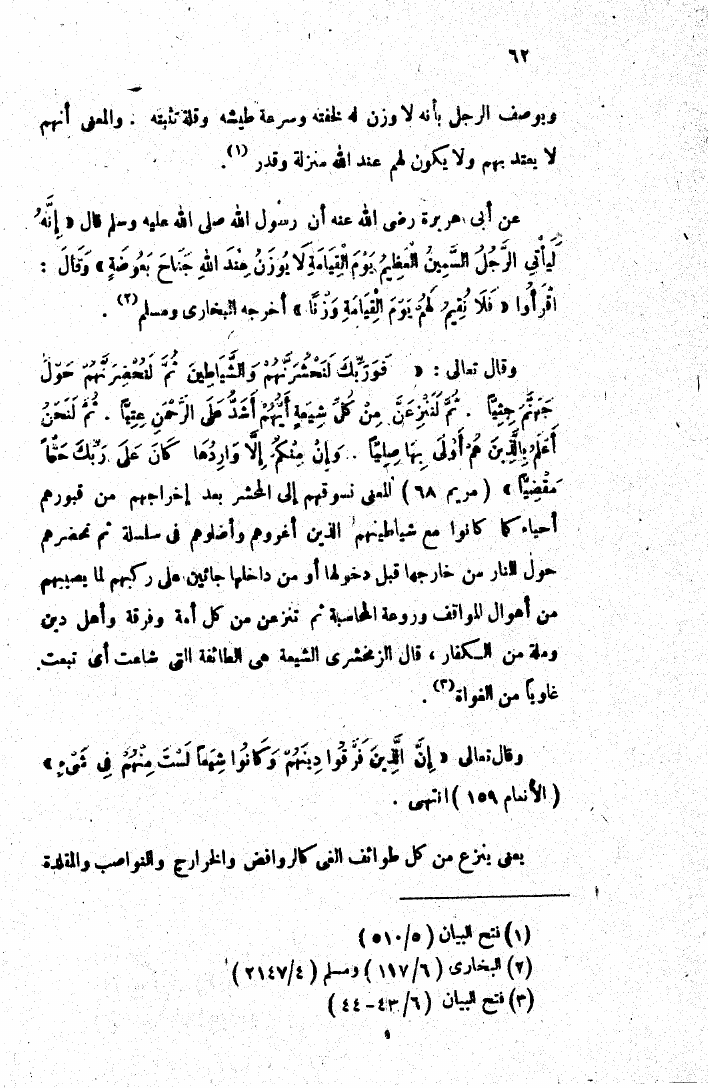 ٦٢
ويوصف الرجل بأنه لا وزن له لخفته وسرعة طيشه وقلة تثبته . والمعنى أنهم
لا يعتد بهم ولا يكون لهم عند الله منزلة وقدر (١).
عن أبى هريرة رضى الله عنه أن رسول الله صلى الله عليه وسلم قال « إِنَّهُ
لَيأْتِي الرَّجُلُ السَّمِينُ الْعَظِيمُ يَوْمَ الْقِيَامَةِ لَا يُوزَنُ عِنْدَ اللهِ جَنَاحَ بَعُوضَةٍ » وَقَالَ :
اقْرَأُوا « فَلَا نُقِيمُ لَهُمْ يَوْمَ الْقِيَامَةِ وَزْنًا » أخرجه البخارى ومسلم (٢) .
وقال تعالى : « فَوَرَبِّكَ لَنَحْشُرَنَّهُمْ وَالشَّيَاطِينَ ثُمَّ لَنُحْضِرَنَّهُمْ حَوْلَ
جَهَنَّمَ جِثِيًّا . ثُمَّ لَنَنْزِعَنَّ مِنْ كُلِّ شِيعَةٍ أَيُّهُمْ أَشَدُّ عَلَى الرَّحْمَنِ عِتِيًّا . ثُمَّ لَنَحْنُ
أَعْلَمُ بِالَّذِينَ هُمْ أَوْلَى بِهَا صِلِيًّا . وَإِنْ مِنْكُمْ إِلَّا وَارِدُهَا كَانَ عَلَى رَبِّكَ حَتْمًا
مَقْضِيًّا » ( مريم ٦٨ ) المعنى نسوقهم إلى المحشر بعد إخراجهم من قبورهم
أحياء كما كانوا مع شياطينهم الذين أغروهم وأضلوهم فى سلسلة ثم نحضرهم
حول النار من خارجها قبل دخولها أو من داخلها جاثين على ركبهم لما يصيبهم
من أهوال المواقف وروعة المحاسبة ثم تنزعن من كل أمة وفرقة وأهل دين
وملة من الكفار ، قال الزمخشرى الشيعة هى الطائفة التى شاعت أى تبعت
غاويا من الغواة (٣) .
وقال تعالى « إِنَّ الَّذِينَ فَرَّقُوا دِينَهُمْ وَكَانُوا شِيَعًا لَسْتَ مِنْهُمْ فِى شَىْءٍ »
( الأنعام ١٥٩ ) انتهى .
يعنى ينزع من كل طوائف الغى كالروافض والخوارج والنواصب والمقلدة
(١) فتح البيان ( ٥١٠/٥ )
(٢) البخارى ( ١١٧/٦ ) ومسلم ( ٢١٤٧/٤ )
(٣) فتح البيان ( ٤٣/٦-٤٤ )